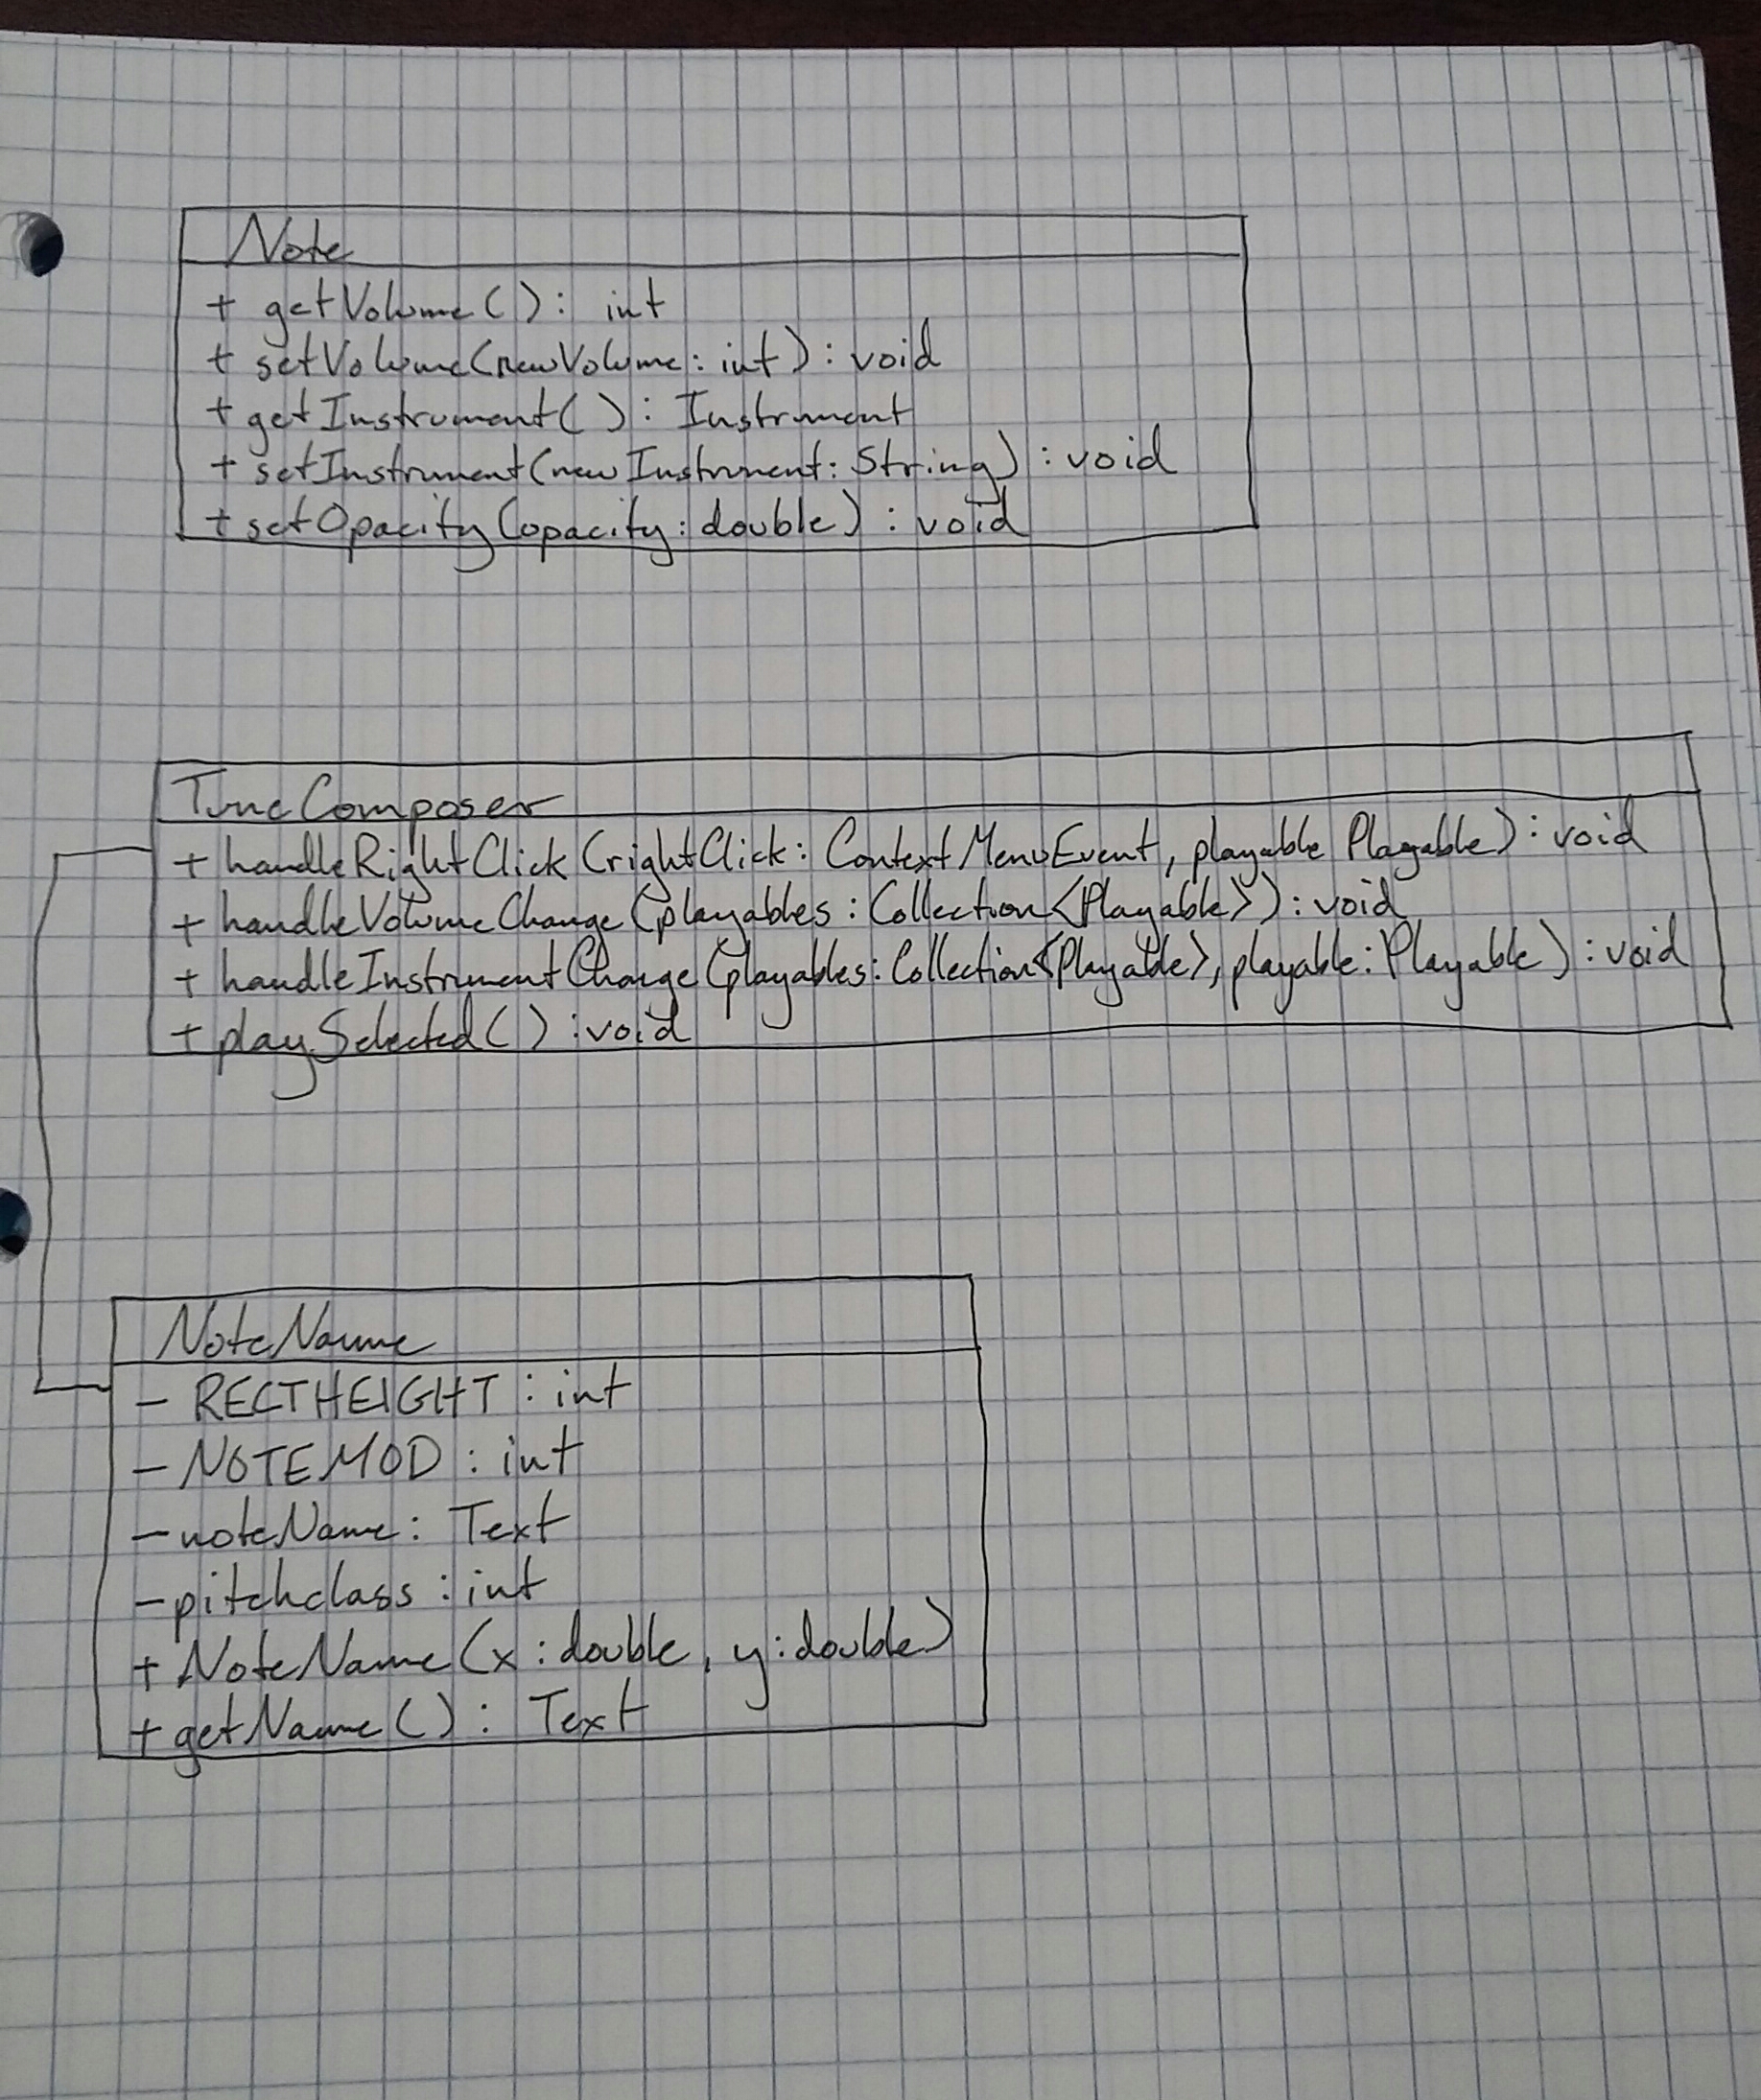 Note
+ getVolume( ): int
+ setVolume(newVolume: int): void
+ getInstrument( ): Instrument
+ setInstrument(newInstrument: String) : void
+ setOpacity(opacity: double) : void
TuneComposer
+ handleRightClick (rightClick: ContextMenuEvent, playable Playable) : void
+ handleVolumeChange(playables: Collection<Playable>): void
+ handleInstrumentChange(playables: Collection<Playable>, playable: Playable) : void
+ playSelected( ) : void
NoteName
- RECTHEIGHT : int
- NOTEMOD : int
- noteName: Text
- pitchclass : int
+ NoteName(x: double, y: double)
+ getName( ): Text